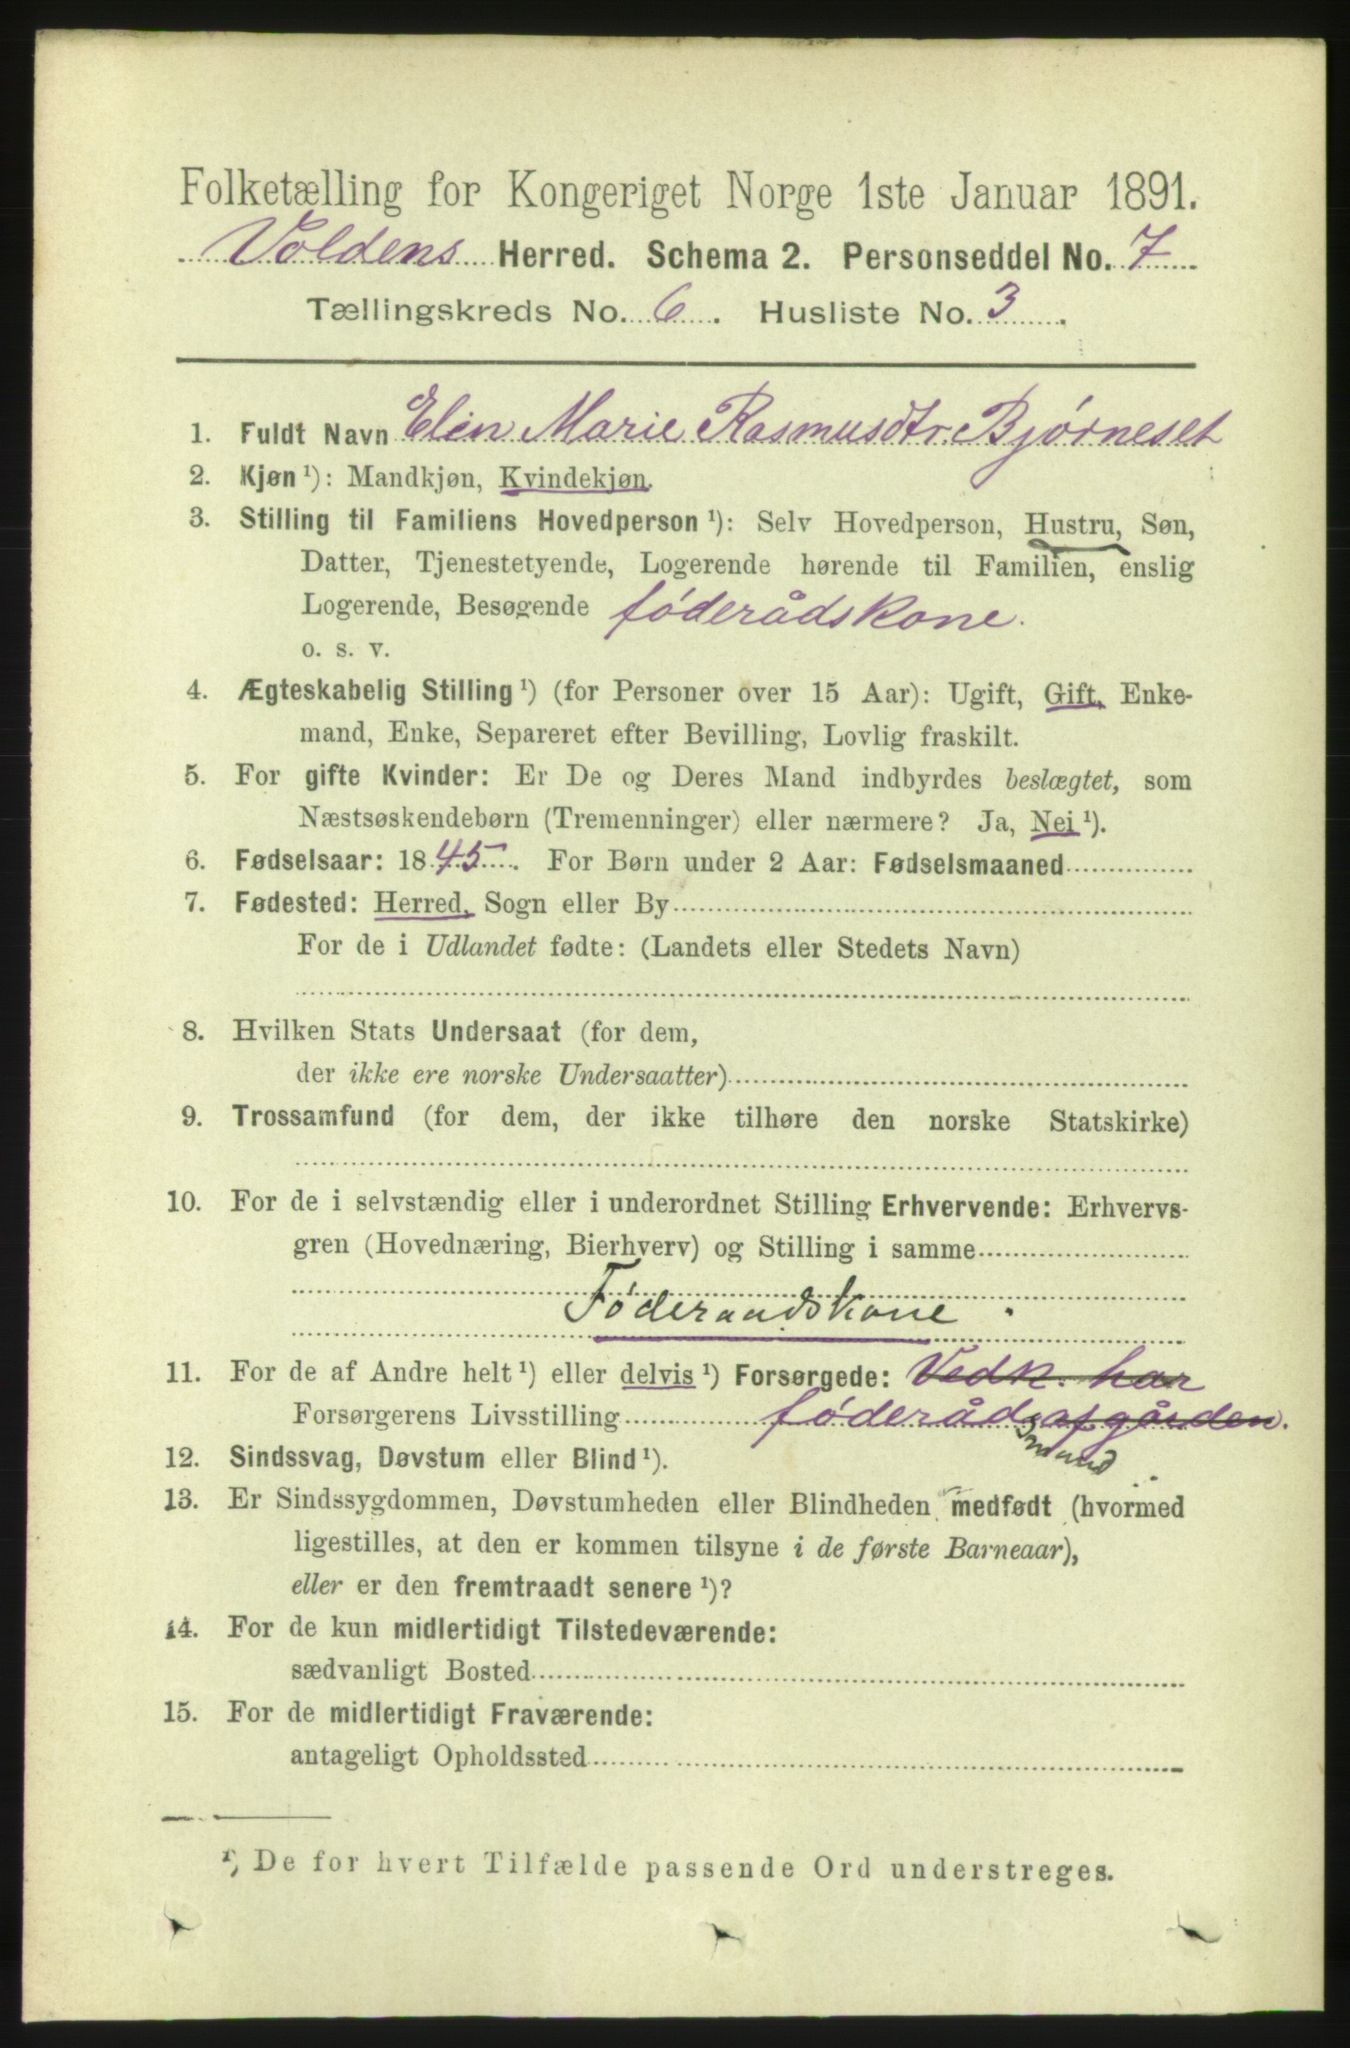 Folketælling for Kongeriget Norge 1ste Januar 1891.
Voldens Herred. Schema 2. Personseddel No. 7
Tællingskreds No. 6. Husliste No. 3.
1. Fuldt Navn Elen Marie Rasmusdtr. Bjørneset
2. Kjøn ¹): Mandkjøn, Kvindekjøn.
3. Stilling til Familiens Hovedperson ¹): Selv Hovedperson, Hustru, Søn,
Datter, Tjenestetyende, Logerende hørende til Familien, enslig
Logerende, Besøgende føderådskone.
o. s. v.
4. Ægteskabelig Stilling ¹) (for Personer over 15 Aar): Ugift, Gift, Enke-
mand, Enke, Separeret efter Bevilling, Lovlig fraskilt.
5. For gifte Kvinder: Er De og Deres Mand indbyrdes beslægtet, som
Næstsøskendebørn (Tremenninger) eller nærmere? Ja, Nei ¹).
6. Fødselsaar: 1845. For Børn under 2 Aar: Fødselsmaaned
7. Fødested: Herred, Sogn eller By
For de i Udlandet fødte: (Landets eller Stedets Navn)
8. Hvilken Stats Undersaat (for dem,
der ikke ere norske Undersaatter)
9. Trossamfund (for dem, der ikke tilhøre den norske Statskirke)
10. For de i selvstændig eller i underordnet Stilling Erhvervende: Erhvervs-
gren (Hovednæring, Bierhverv) og Stilling i samme
Føderaadskone.
11. For de af Andre helt ¹) eller delvis ¹) Forsørgede: Vedk. har
Forsørgerens Livsstilling føderåd af gården.
smand
12. Sindssvag, Døvstum eller Blind ¹).
13. Er Sindssygdommen, Døvstumheden eller Blindheden medfødt (hvormed
ligestilles, at den er kommen tilsyne i de første Barneaar),
eller er den fremtraadt senere ¹)?
14. For de kun midlertidigt Tilstedeværende:
sædvanligt Bosted
15. For de midlertidigt Fraværende:
antageligt Opholdssted
¹) De for hvert Tilfælde passende Ord understreges.